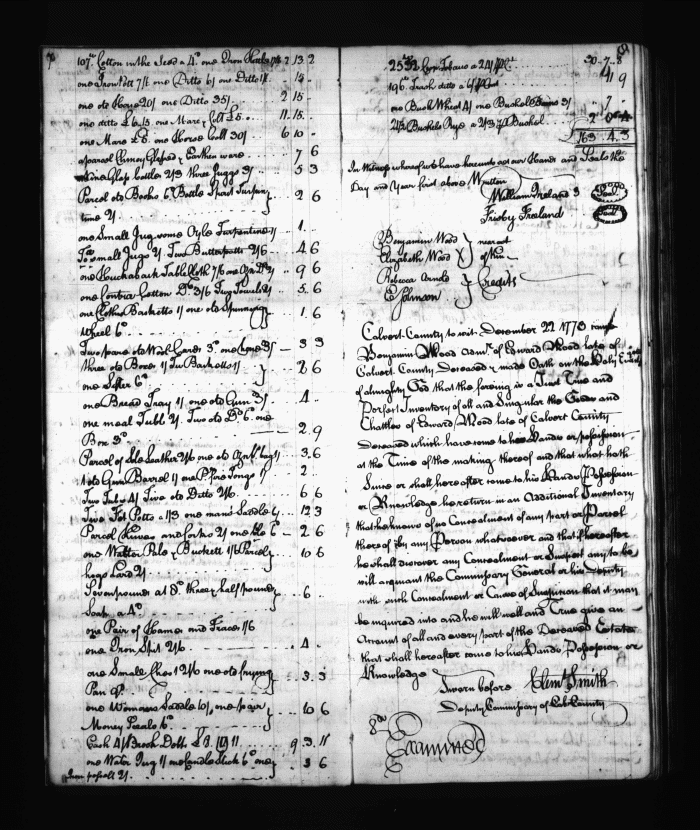 107 lb Cotton in the Seed a 4d. one Iron Kettle 7/6 2 13 2
one Iron Pott 7/. one Ditto 6/ one Ditto
one old Horse 20/ one Ditto 35/. 2 15
one ditto £6.15. one Mare & Colt £5. 11.15.
one Mare £5. one Horse Colt 30/ 6 10
a parcel Earthen ware 7 6
Glass bottles 2/3 three Juggs 3/ 5 3
Parcel old Books 6d Bottle Spirit Turpin
tine 2/. 2 6
one Small Jug some Oyle Turpentine 1/ 1.
Two small Jugs 2/. Two Butterpotts 2/6 4 6
one Huckaback Table Cloth 7/6 one 2/ 9 6
one Cotton Do. 3/6 Two Towels 2/ 5.6
one Clothes Basketts 1/ one old Spinning
wheel 6d. 1 6
Two pair old Wool Cards 3d. one 3/ 3 3
three old Boxes 1/ Two Basketts 1/
one Sifter 6d. 2 6
one Bread Tray 1/ one old Gun 3/ 4
one meal Tubb 2/. Two old Do. 6d. one
Box 3d. 2.9
Parcel of Sole Leather 2/6 one old bag 1/ 3.6
1 old Gun Barrel 1/ one Pr fire Tongs 1/ 2
Two Tubs 4/ Five old Ditto 2/6. 6 6
Two Potts a 1/3 one mans Saddle 12 3
Parcel Knives and forks 2/ one 6d 2 6
one Water Pale & Buckett 1/6 Parcel
hogs Lard 10 6
Seven pounds at 8d three half pounds
Soap a 4d. 6
one Pair of Hames and Traces 1/6
one Iron Spit 2/6 4
one Small Chest 2/6 one old frying
Pan 9d. 3.3
one Womans Saddle 10/, one pair
Money Scales 6d. 10 6
Cash 4/ Book Debts £ 9.3.11
one Water Jug 1/ one Candle Stick 6d one 3 6
2/.
Crop Tobacco a 24/ Pr Ct. 30.7.8
196 lb Trash ditto a 9
one Bush Wheat 4/ one Bushel Beans 3/ 7
Bushels Rye a 2/3 Pr Bushel 2
£163.4.3
In witness whereof we have hereunto set our Hands and Seals the
Day and Year first above Written
William Ireland 3 Seal
Frisby Freeland Seal
Benjamin Wood } nearest
Elizabeth Wood } of Kin
Rebecca Arnold } Credits
E Johnson
Calvert County to wit. December 22 1773 came
Benjamin Wood Admr. of Edward Wood late of
Calvert County Deceased & made Oath on the Holy
of almighty God that the foregoing is a Just True and
Perfect Inventory of all and Singular the Goods and
Chattles of Edward Wood late of Calvert County
Deceased which have come to his Hands or possession
at the Time of the making thereof and that what hath
Since or shall hereafter come to his Hands Possession
or Knowledge he return in an Additional Inventory
that he knows of no Concealment of any part or Parcel
thereof by any Person whatsoever and that if hereafter
he shall discover any Concealment or Suspect any to be
will acquaint the Commissary General or his Deputy
with such Concealment or Cause of Suspicion that it may
be inquired into and he will well and True give an
Account of all and every part of the Deceased Estate
that shall hereafter come to his Hands Possession or
Knowledge
Sworn before Clemt. Smith
Deputy Commissary of Cal. County
Examined